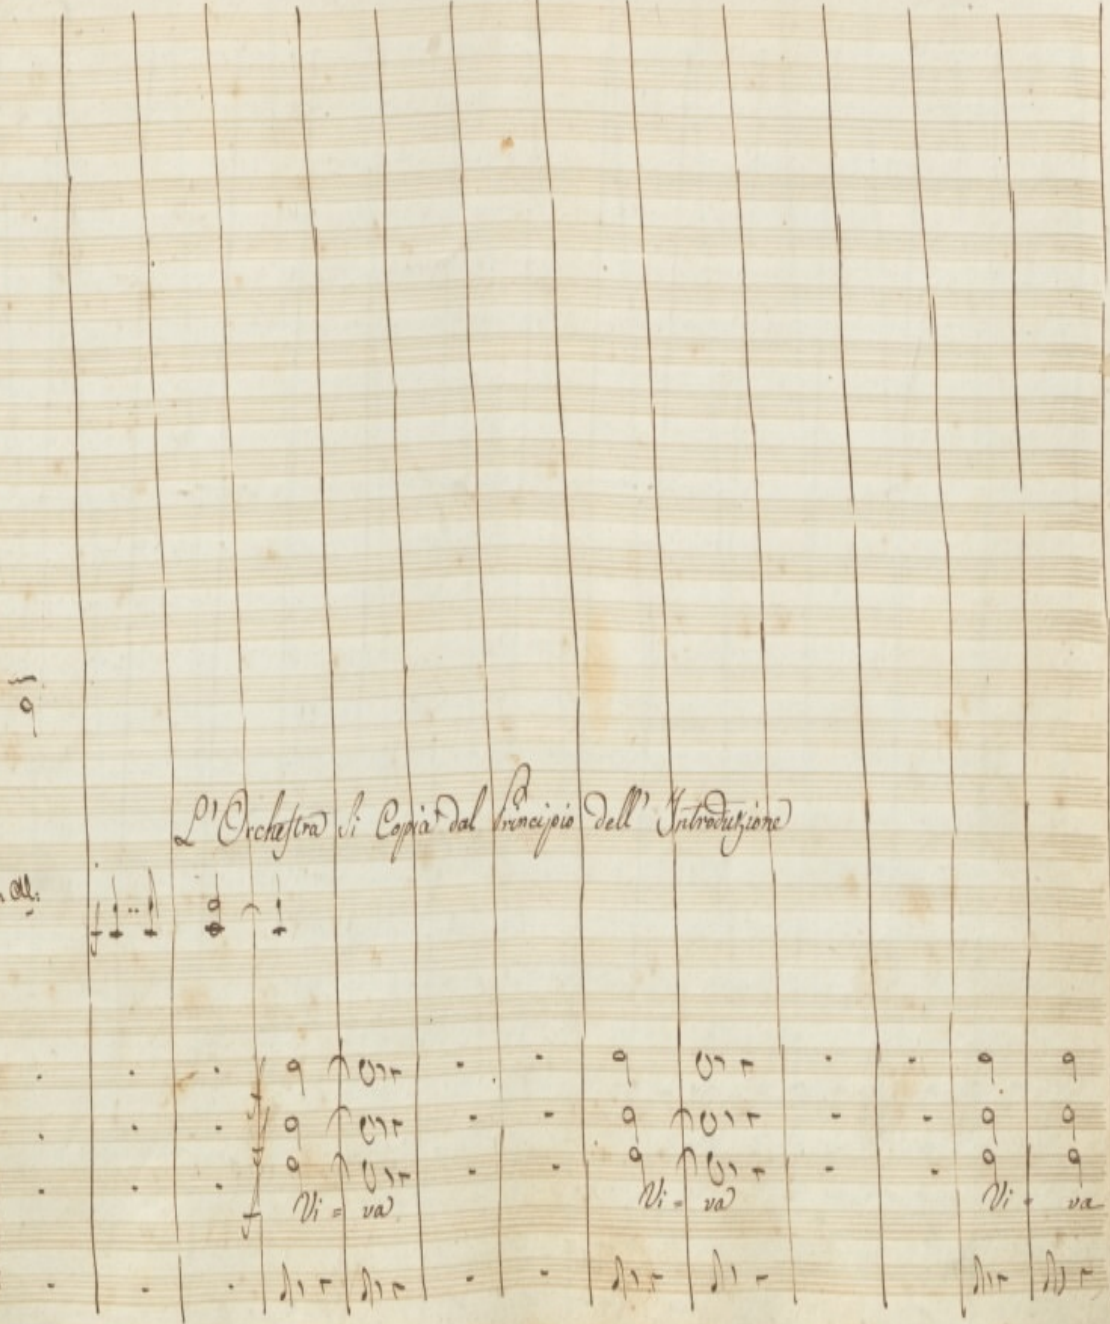 L'Orchestra Si Copia dal Principio dell' Introduzione
All:
f
f
f
f
Vi = va Vi = va Vi = va